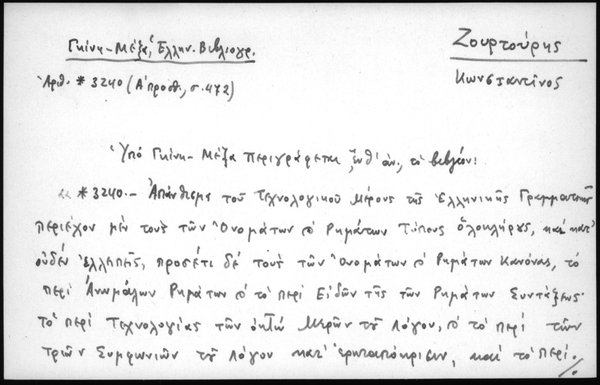 Γκίνη-Μέξα, Ἑλλην. Βιβλιογρ.
Ζουρτούρης
Κωνσταντῖνος
Ἀριθ. *3240 (Α΄ προσθ., σ. 472)
Ὑπό Γκίνη-Μέξα περιγράφεται, ἔνθ' ἀν., τό βιβλίον:
«*3240.- Ἀπάνθισμα τοῦ Τεχνολογικοῦ Μέρους τῆς Ἑλληνικῆς Γραμματικῆς
περιέχον μέν τούς τῶν Ὀνομάτων ϗ Ῥημάτων Τύπους ὁλοκλήρους, καί κατ'
οὐδέν ἐλλειπεῖς, προσέτι δέ τούς τῶν Ὀνομάτων ϗ Ῥημάτων Κανόνας, τό
περί Ἀνωμάλων Ῥημάτων ϗ τό περί Εἰδῶν τῆς τῶν Ῥημάτων Συντάξεως
τό περί Τεχνολογίας τῶν ὀκτώ Μερῶν τοῦ Λόγου, ϗ τό περί τῶν
τριῶν Συμφωνιῶν τοῦ Λόγου κατ' ἐρωταπόκρισιν, καί τό περί
./.